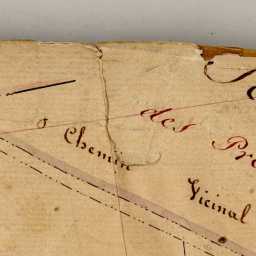 des Pré
Chemin
Vicinal